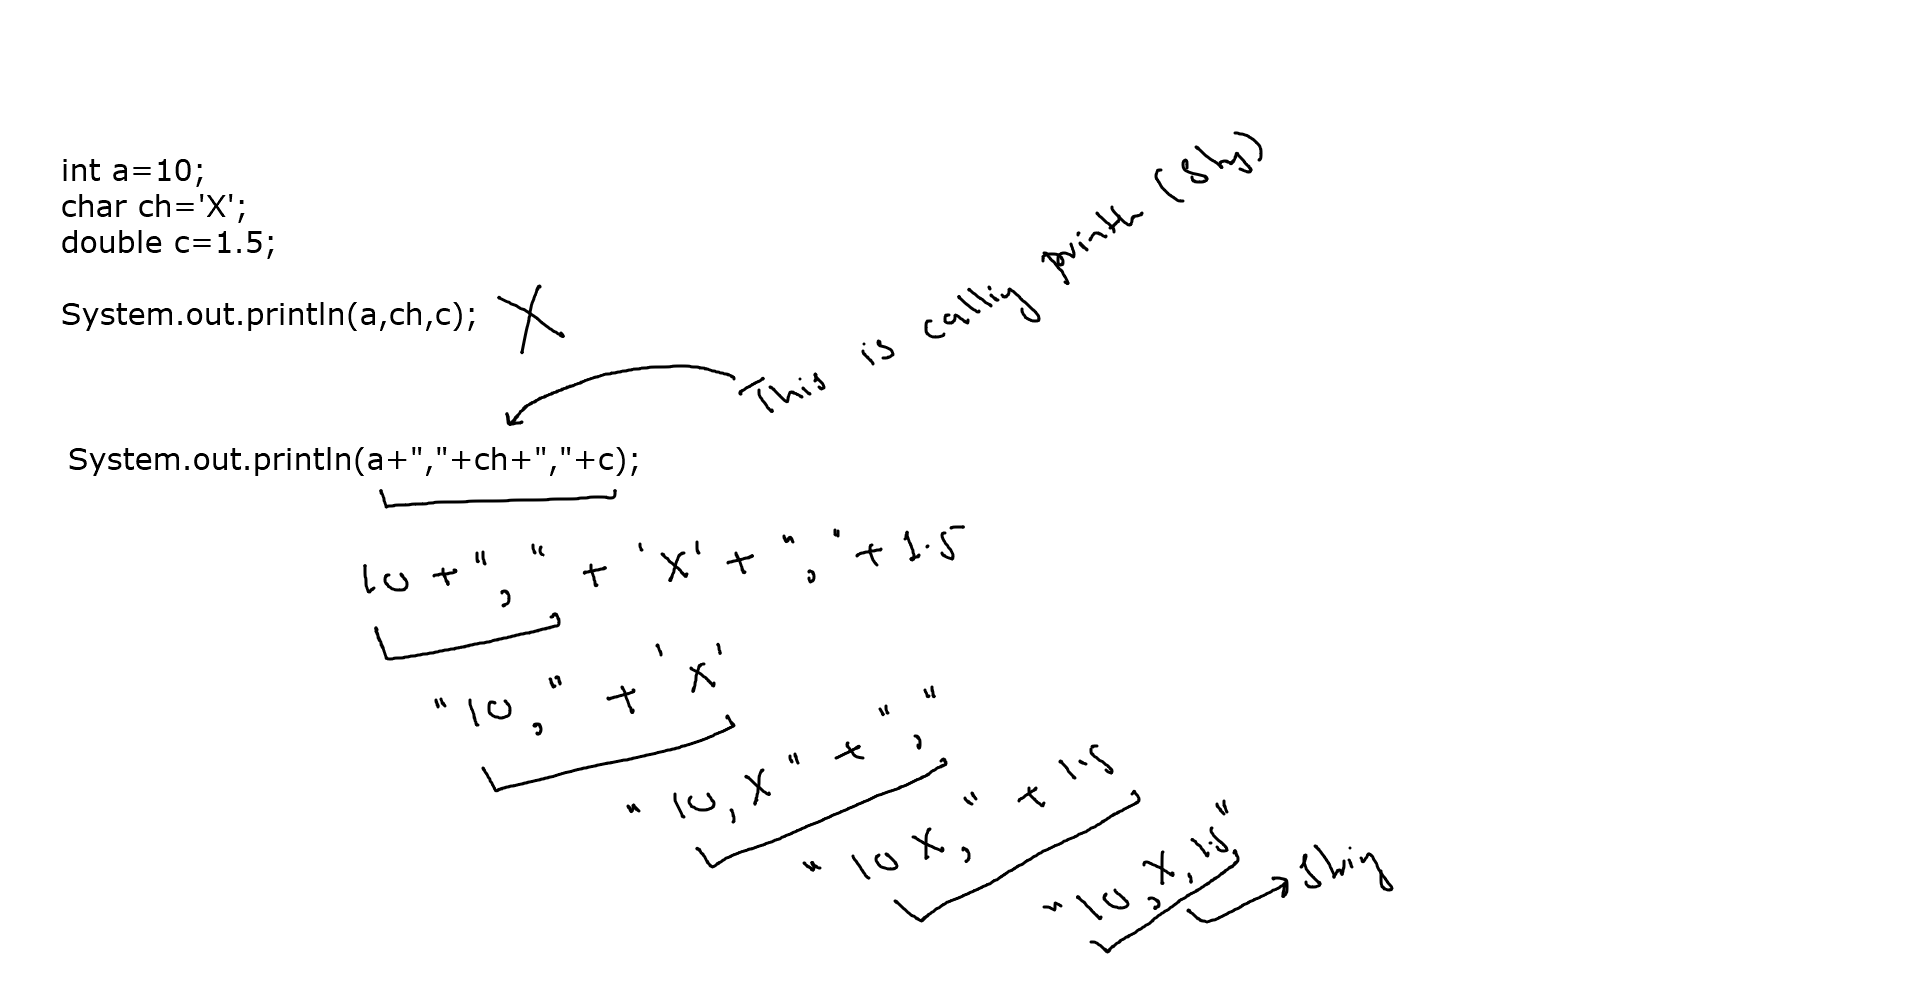 int a=10;
char ch='X';
double c=1.5;
System.out.println(a,ch,c); X
This is calling println (String)
System.out.println(a+","+ch+","+c);
10 + "," + 'X' + "," + 1.5
"10," + 'X'
"10,X" + ","
"10X," + 1.5
"10,X,1.5" String